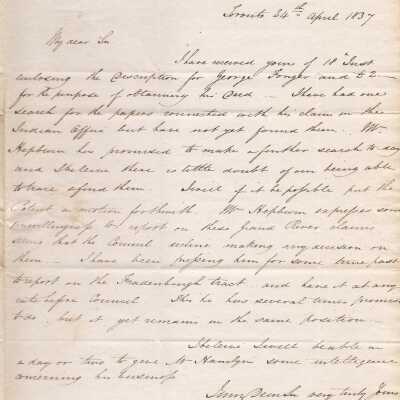 Toronto 24th April 1837
My dear Sir
I have received yours of 18th Inst
enclosing the description for George Fonger and £2—
for the purpose of obtaining his Deed — I have had one
search for the papers connected with his claim in the
Indian Office but have not yet found them. Mr
Hepburn has promised to make a further search to day
and I believe there is little doubt of our being able
to find them. I will if it be possible put the
Patent in motion forthwith. Mr Hepburn expresses some
unwillingness to report on these Grand River claims
seeing that the Council decline making any decision on
them — I have been pressing him for some time past
to report on the tract and have it at any
rate before Council. Tho he has several times promised
to do, but it yet remains in the same position —
I believe I will be able in
a day or two to give Mr Hamlyn some intelligence
concerning his business
I am My Dear Sir very truly Yours